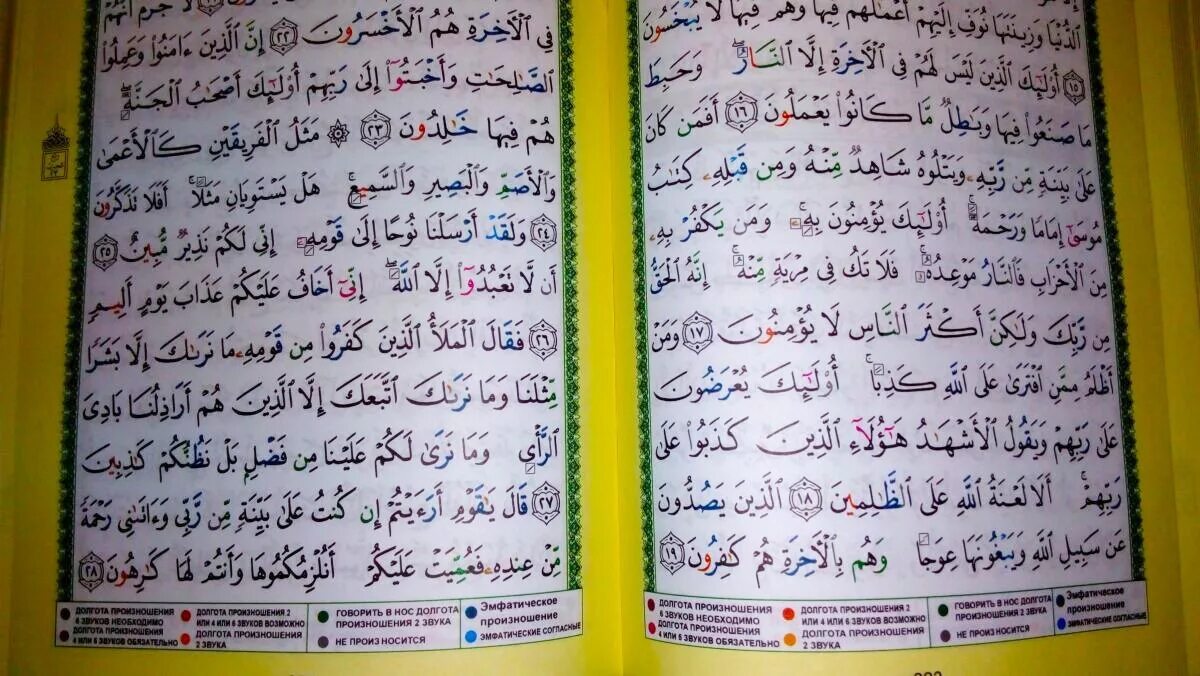 ٱلدُّنْيَا وَزِينَتَهَا نُوَفِّ إِلَيْهِمْ أَعْمَٰلَهُمْ فِيهَا وَهُمْ فِيهَا لَا يُبْخَسُونَ
﴿١٥﴾ أُو۟لَٰٓئِكَ ٱلَّذِينَ لَيْسَ لَهُمْ فِى ٱلْأَخِرَةِ إِلَّا ٱلنَّارُ ۖ وَحَبِطَ
مَا صَنَعُوا۟ فِيهَا وَبَٰطِلٌ مَّا كَانُوا۟ يَعْمَلُونَ ﴿١٦﴾ أَفَمَن كَانَ
عَلَىٰ بَيِّنَةٍ مِّن رَّبِّهِۦ وَيَتْلُوهُ شَاهِدٌ مِّنْهُ وَمِن قَبْلِهِۦ كِتَٰبُ
مُوسَىٰٓ إِمَامًا وَرَحْمَةً ۚ أُو۟لَٰٓئِكَ يُؤْمِنُونَ بِهِۦ ۚ وَمَن يَكْفُرْ بِهِۦ
مِنَ ٱلْأَحْزَابِ فَٱلنَّارُ مَوْعِدُهُۥ ۚ فَلَا تَكُ فِى مِرْيَةٍ مِّنْهُ ۚ إِنَّهُ ٱلْحَقُّ
مِن رَّبِّكَ وَلَٰكِنَّ أَكْثَرَ ٱلنَّاسِ لَا يُؤْمِنُونَ ﴿١٧﴾ وَمَنْ
أَظْلَمُ مِمَّنِ ٱفْتَرَىٰ عَلَى ٱللَّهِ كَذِبًا ۚ أُو۟لَٰٓئِكَ يُعْرَضُونَ
عَلَىٰ رَبِّهِمْ وَيَقُولُ ٱلْأَشْهَٰدُ هَٰٓؤُلَآءِ ٱلَّذِينَ كَذَبُوا۟ عَلَىٰ
رَبِّهِمْ ۚ أَلَا لَعْنَةُ ٱللَّهِ عَلَى ٱلظَّٰلِمِينَ ﴿١٨﴾ ٱلَّذِينَ يَصُدُّونَ
عَن سَبِيلِ ٱللَّهِ وَيَبْغُونَهَا عِوَجًا وَهُم بِٱلْأَخِرَةِ هُمْ كَٰفِرُونَ ﴿١٩﴾
ДОЛГОТА ПРОИЗНОШЕНИЯ 6 ЗВУКОВ НЕОБХОДИМО
ДОЛГОТА ПРОИЗНОШЕНИЯ 4 ИЛИ 6 ЗВУКОВ ОБЯЗАТЕЛЬНО
ДОЛГОТА ПРОИЗНОШЕНИЯ 2 ИЛИ 4 ИЛИ 6 ЗВУКОВ ВОЗМОЖНО
ДОЛГОТА ПРОИЗНОШЕНИЯ 2 ЗВУКА
ГОВОРИТЬ В НОС ДОЛГОТА ПРОИЗНОШЕНИЯ 2 ЗВУКА
НЕ ПРОИЗ НОСИТСЯ
Эмфатическое произношение
ЭМФАТИЧЕСКИЕ СОГЛАСНЫЕ
فِى ٱلْأَخِرَةِ هُمُ ٱلْأَخْسَرُونَ ﴿٢٢﴾ إِنَّ ٱلَّذِينَ ءَامَنُوا۟ وَعَمِلُوا۟
ٱلصَّٰلِحَٰتِ وَأَخْبَتُوٓا۟ إِلَىٰ رَبِّهِمْ أُو۟لَٰٓئِكَ أَصْحَٰبُ ٱلْجَنَّةِ ۖ
هُمْ فِيهَا خَٰلِدُونَ ﴿٢٣﴾ ۞ مَثَلُ ٱلْفَرِيقَيْنِ كَٱلْأَعْمَىٰ
وَٱلْأَصَمِّ وَٱلْبَصِيرِ وَٱلسَّمِيعِ ۚ هَلْ يَسْتَوِيَانِ مَثَلًا ۚ أَفَلَا تَذَكَّرُونَ
﴿٢٤﴾ وَلَقَدْ أَرْسَلْنَا نُوحًا إِلَىٰ قَوْمِهِۦٓ إِنِّى لَكُمْ نَذِيرٌ مُّبِينٌ ﴿٢٥﴾
أَن لَّا تَعْبُدُوٓا۟ إِلَّا ٱللَّهَ ۖ إِنِّىٓ أَخَافُ عَلَيْكُمْ عَذَابَ يَوْمٍ أَلِيمٍ
﴿٢٦﴾ فَقَالَ ٱلْمَلَأُ ٱلَّذِينَ كَفَرُوا۟ مِن قَوْمِهِۦ مَا نَرَىٰكَ إِلَّا بَشَرًا
مِّثْلَنَا وَمَا نَرَىٰكَ ٱتَّبَعَكَ إِلَّا ٱلَّذِينَ هُمْ أَرَاذِلُنَا بَادِىَ
ٱلرَّأْىِ وَمَا نَرَىٰ لَكُمْ عَلَيْنَا مِن فَضْلٍۭ بَلْ نَظُنُّكُمْ كَٰذِبِينَ
﴿٢٧﴾ قَالَ يَٰقَوْمِ أَرَءَيْتُمْ إِن كُنتُ عَلَىٰ بَيِّنَةٍ مِّن رَّبِّى وَءَاتَىٰنِى رَحْمَةً
مِّنْ عِندِهِۦ فَعُمِّيَتْ عَلَيْكُمْ أَنُلْزِمُكُمُوهَا وَأَنتُمْ لَهَا كَٰرِهُونَ ﴿٢٨﴾
ДОЛГОТА ПРОИЗНОШЕНИЯ 6 ЗВУКОВ НЕОБХОДИМО
ДОЛГОТА ПРОИЗНОШЕНИЯ 4 ИЛИ 6 ЗВУКОВ ОБЯЗАТЕЛЬНО
ДОЛГОТА ПРОИЗНОШЕНИЯ 2 ИЛИ 4 ИЛИ 6 ЗВУКОВ ВОЗМОЖНО
ДОЛГОТА ПРОИЗНОШЕНИЯ 2 ЗВУКА
ГОВОРИТЬ В НОС ДОЛГОТА ПРОИЗНОШЕНИЯ 2 ЗВУКА
НЕ ПРОИЗ НОСИТСЯ
Эмфатическое произношение
ЭМФАТИЧЕСКИЕ СОГЛАСНЫЕ